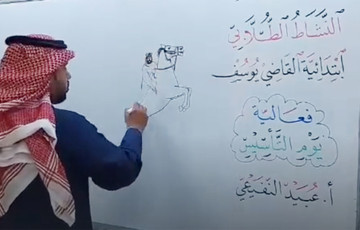 النَّشَاطُ الطُّلَّابِي
ابْتِدَائِيَّةُ الْقَاضِي يُوسُف
فَعَالِيَّة
يَوْمِ التَّأْسِيسِ
أ. عُبَيْد النُّفَيْعِي